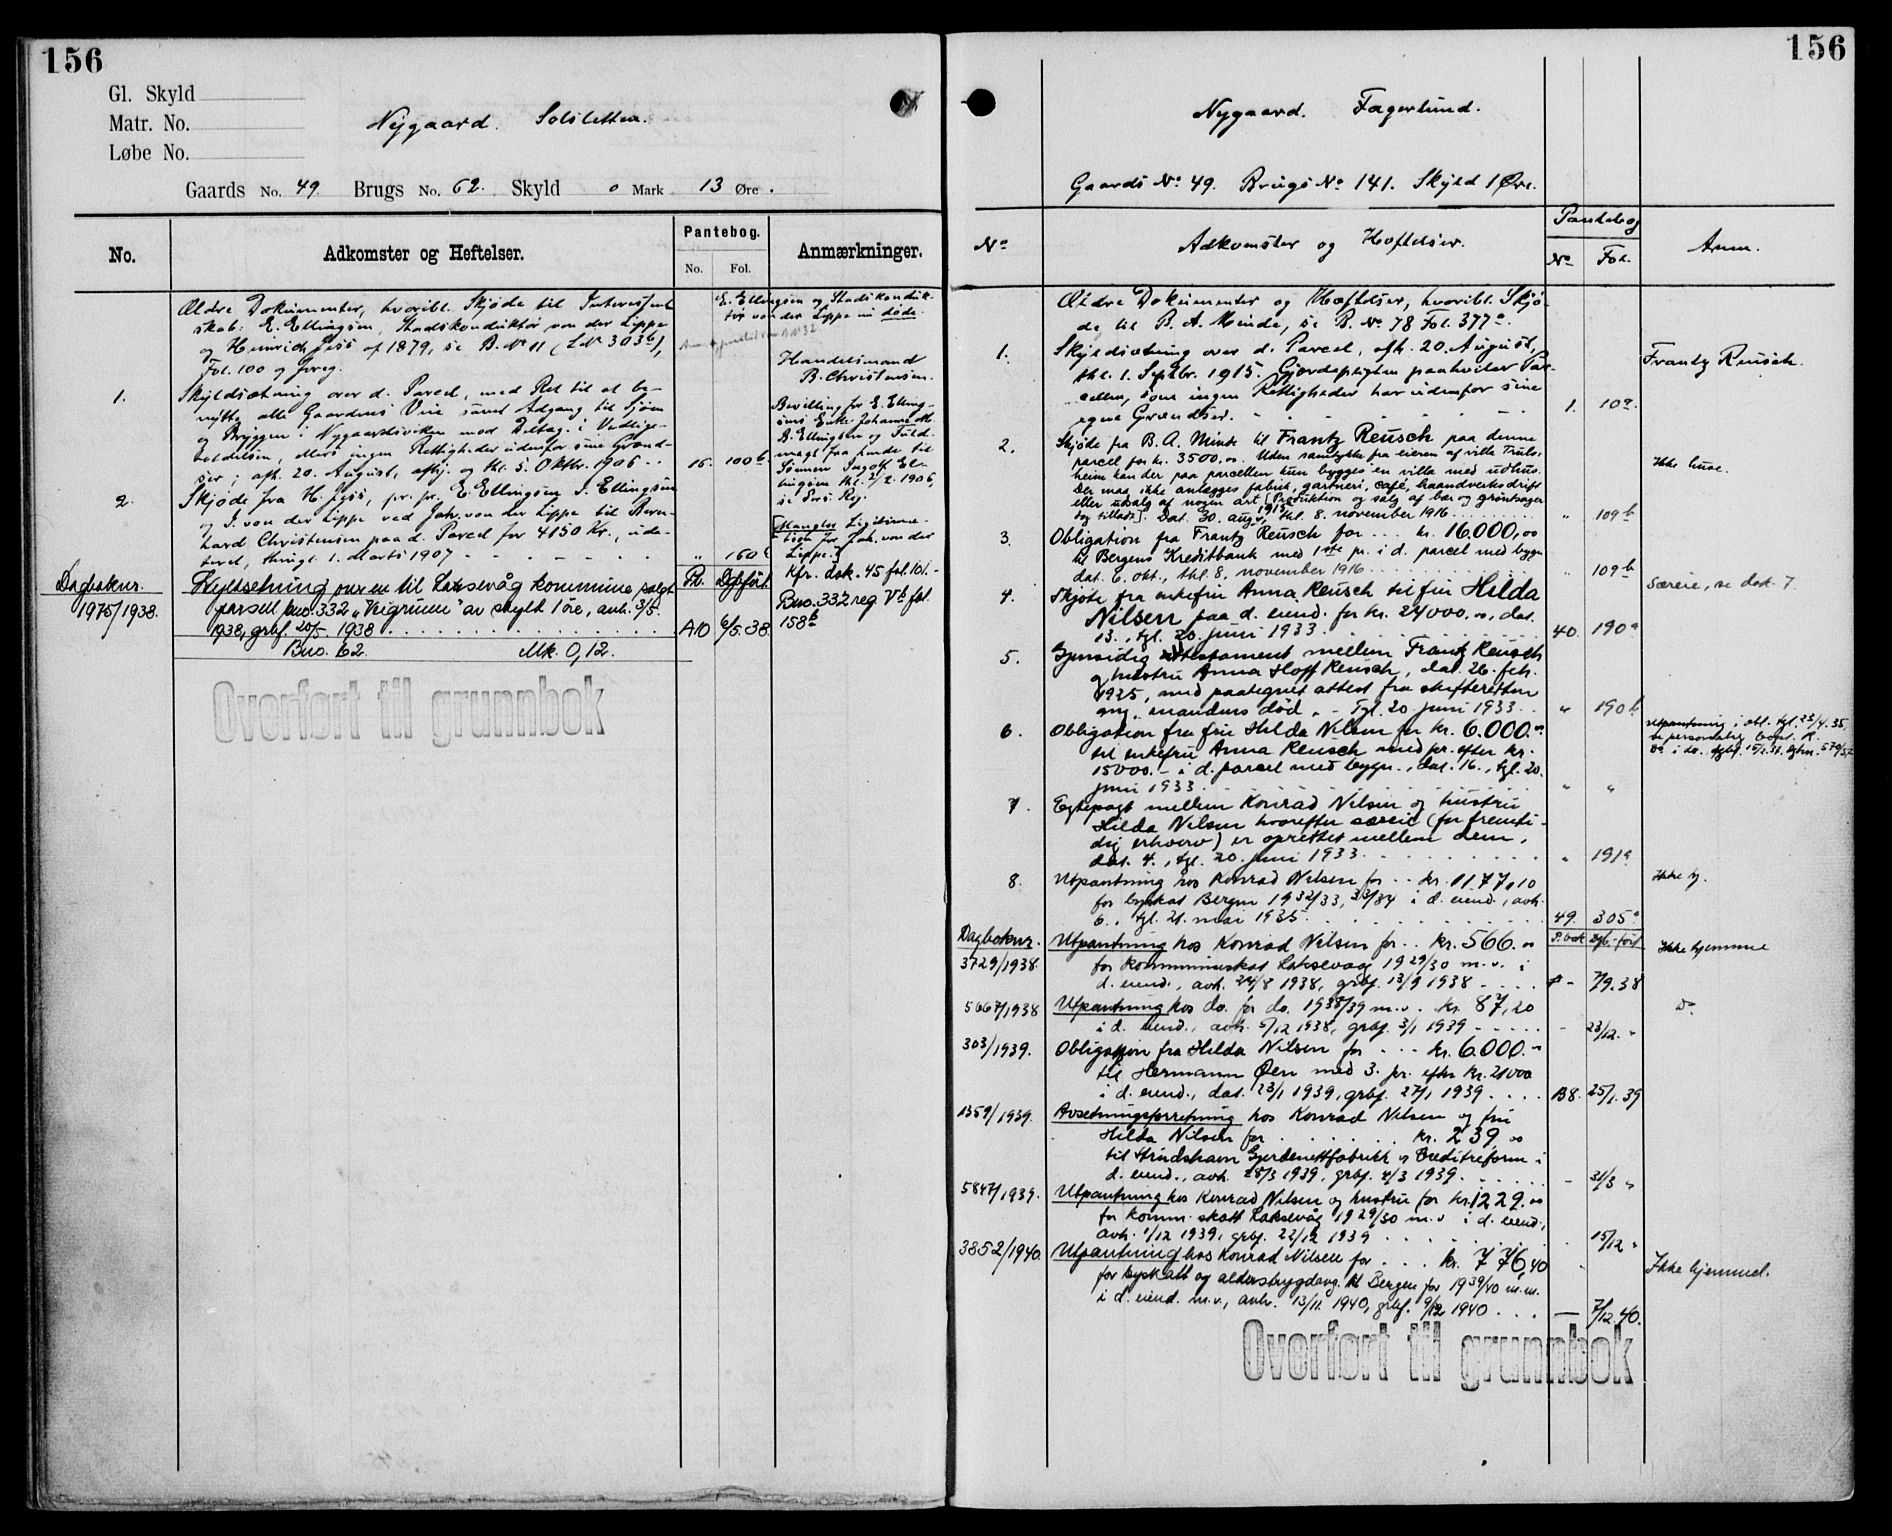 156
Gl. Skyld
Matr. No.
Løbe No.
Nygaard. Solsletten.
Gaards No. 49. Brugs No. 62. Skyld 0 Mark 13 Øre.
No. Adkomster og Heftelser. Pantebog. Anmærkninger.
No. Fol.
Ældre Dokumenter, hvoribl. Skjøde til Interessent
skab: E. Ellingsen, Stadskonduktør von der Lippe
og Heinrich Jess af 1879, se B. No 11 (LNr 303b),
Fol. 100 og foreg.
E. Ellingsen og Stadskonduk-
tør von der Lippe er døde.
Handelsmand
B. Christensen.
1. Skyldsætning over d. Parcel, med Ret til at be-
nytte alle Gaardens Veie samt Adgang til Sjøen
og Bryggen i Nygaardsviken mod Deltag. i Vedlige-
holdelsen, ellers ingen Rettigheder udenfor sine Grænd-
ser; afh. 20. August, afhj. og thl. 5. Oktbr. 1906 . . 15. 100b.
Bevilling for E. Elling-
sens Enke Johanne M.
B. Ellingsen og Fuld-
magt fra hende til
Sønnen Ingolf El-
lingsen thl. 2/2. 1906,
se Pers. Reg.
2. Skjøde fra H. Jess, pr. pr. E. Ellingsen I. Ellingsen
og J. von der Lippe ved Joh. von der Lippe til Bern-
hard Christensen paa d. Parcel for 4150 Kr., uda-
teret, thingl. 1. Marts 1907 - - - - - " 160b
[Mangler Legitima-
tion for Joh. von der
Lippe.]
Dagboknr. Skyldsetning over en til Laksevåg kommune solgt Pb. Dgbført. Kfr. dok. 45 fol. 101.-
1975/1938. parsell bno. 332 „Veigrunn" av skyld 1 øre, avh. 3/5.
1938, grbf. 20/5 - 1938 . . . . . A10 6/5.38. Bno. 332 reg. Vb fol.
158b
Bno. 62. Mk. 0,12.
Overført til grunnbok
156
Nygaard. Fagerlund.
Gaards No. 49. Brugs No 141. Skyld 1 Øre.
No Adkomster og Heftelser. Pantebog Anm.
No Fol.
Ældre Dokumenter og Hæftelser, hvoribl. Skjø-
de til B. A. Minde, se B. No. 78 Fol. 377a.
1. Skyldsætning over d. Parcel, afh. 20. August,
thl. 1. Septbr. 1915. Gjerdepligten paahviler Par-
cellen, som ingen Rettigheder har udenfor sine
egne Grændser. - - - - 1. 10a.
Frantz Reusch.
2. Skjøde fra B. A. Minde til Frantz Reusch paa denne
parcel for kr. 3500,00. Uden samtykke fra eieren af villa Truls-
heim kan der paa parcellen kun bygges en villa med udhus.
Der maa ikke anlægges fabrik, gartneri, café, haandverksdrift
eller udsalg af nogen art [Produktion og salg af bær og grøntsager
dog tilladt]. Dat. 30. aug. 1915, thl. 8. november 1916 . . . . " 109b
Ikke huse.
3. Obligation fra Frantz Reusch for . . . . kr. 16.000,00
til Bergens Kreditbank med 1ste pr. i d. parcel med bygn.
dat. 6. okt., thl. 8. november 1916 . . . . " 109b
4. Skjøte fra enkefru Anna Reusch til fru Hilda
Nilsen paa d. eiend. for kr. 24000.00, dat.
13., tgl. 20. juni 1933 . . . . 40. 190a
Særeie, se dok. 7.
5. Gjensidig testament mellem Frantz Reusch
og hustru Anna Hoff Reusch, dat. 26. febr.
1925, med paategnet attest fra skifteretten
ang. mandens død. - Tgl. 20. juni 1933 . . " 190b
6. Obligation fra fru Hilda Nilsen for kr. 6.000.00
til enkefru Anna Reusch med pr. efter kr.
15000.- i d. parcel med bygn., dat. 16., tgl. 20.
juni 1933 . . . . " "
Utpantning i obl. tgl. 23/4.35,
se personalreg. bogst. R.
7. Egtepagt mellem Konrad Nilsen og hustru
Hilda Nilsen hvorefter særeie (for fremti-
dig erhverv) er oprettet mellem dem,
dat. 4., tgl. 20. juni 1933 . . . . " 191a
8. Utpantning hos Konrad Nilsen for . . kr. 1177,10
for byskat Bergen 1932/33, 33/34 i d. eiend., avh.
6., tgl. 21. mai 1935 . . . . 49. 305a
Ikke hj.
Dagboknr. Utpantning hos Konrad Nilsen for . . kr. 566.00 P.bok Dgb.-ført
3729/1938. for kommuneskat Laksevåg 1929/30 m.v. i
d. eiend., avh. 24/8 1938, grbf. 13/9 1938 - - - 7/9.38
Ikke hjemmel
5667/1938 Utpantning hos do. for do. 1938/39 m.v. kr. 87,20
i d. eiend., avh. 5/12 1938, grbf. 3/1 1939 - - - - 23/12. "
do
303/1939. Obligasjon fra Hilda Nilsen for . . . kr. 6.000.-
til Hermann Øen med 3. pr. efter kr. 21000
i d. eiend., dat. 23/1 1939, grbf. 27/1 1939 . . . . B8. 25/1.39
1359/1939. Avsetningsforretning hos Konrad Nilsen og fru
Hilda Nilsen for . . . . kr. 239,00
til Strindshavn Gjerdenettfabrikk og Creditreform i
d. eiend., avh. 28/3 1939, grbf. 4/3 1939 . . . . - 31/3 "
5847/1939. Utpantning hos Konrad Nilsen og hustru for kr. 1229.00
for komm. skatt Laksevåg 1929/30 m.v. i d. eiend.,
avh. 1/12 1939, grbf. 22/12 1939 . . . . 15/12 "
3852/1940. Utpantning hos Konrad Nilsen for . . . kr. 776,40
for byskatt og alderstrygdavg. til Bergen for 1939/40 m.m.
i d. eiend. m.v., avh. 13/11 1940, grbf. 9/12 1940 . . . — 7/12.40.
Ikke hjemmel.
Overført til grunnbok